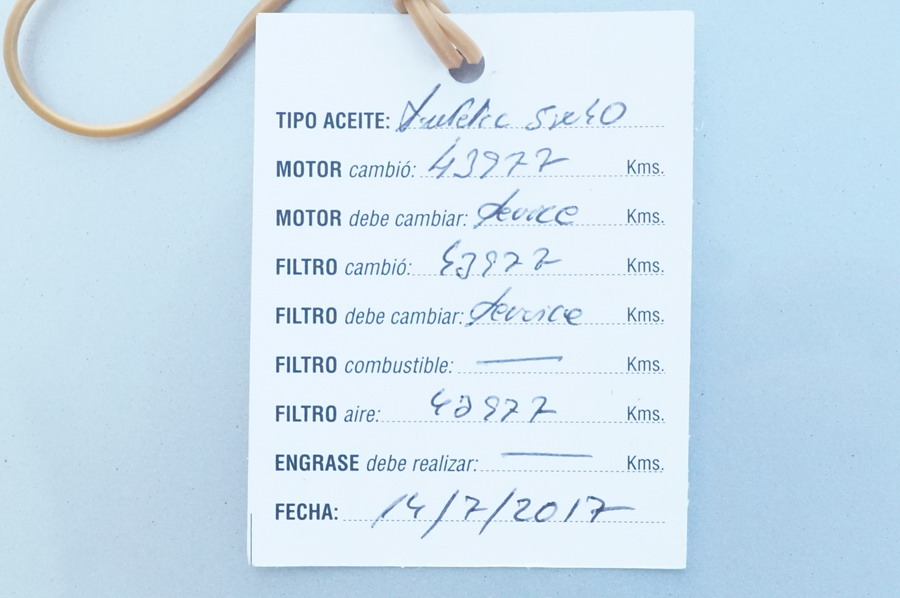 TIPO ACEITE: 5w40
MOTOR cambió: 43977 Kms.
MOTOR debe cambiar: Service Kms.
FILTRO cambió: 43977 Kms.
FILTRO debe cambiar: Service Kms.
FILTRO combustible: — Kms.
FILTRO aire: 43977 Kms.
ENGRASE debe realizar: — Kms.
FECHA: 14/7/2017